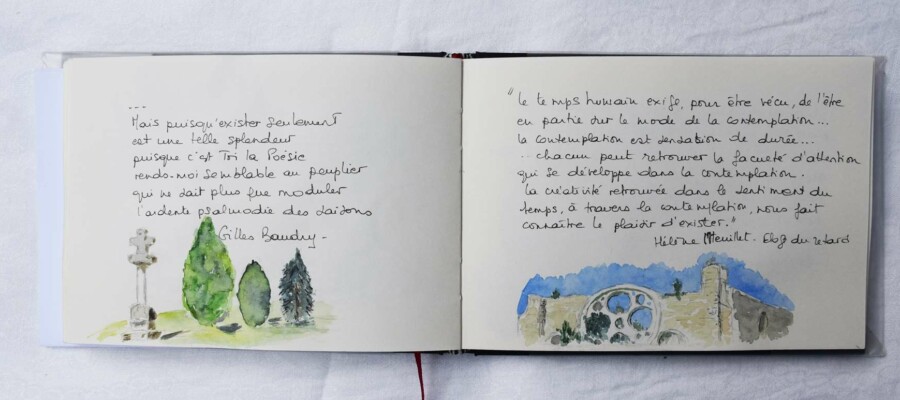 ---
Mais puisqu'exister seulement
est une telle splendeur
puisque c'est Toi la Poésie
rends-moi semblable au peuplier
qui ne sait plus que moduler
l'ardente psalmodie des saisons
Gilles Baudry -
"le temps humain exige, pour être vécu, de l'être
en partie sur le mode de la contemplation...
la contemplation est sensation de durée...
.. chacun peut retrouver la faculté d'attention
qui se développe dans la contemplation.
la créativité retrouvée dans le sentiment du
temps, à travers la contemplation, nous fait
connaître le plaisir d'exister."
Hélène L'Heuillet. Eloge du retard